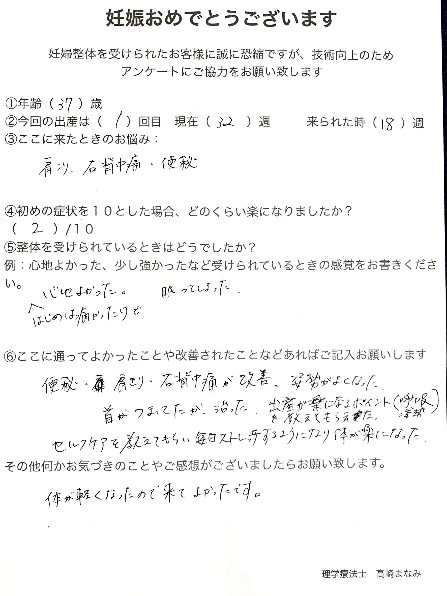 妊娠おめでとうございます
妊婦整体を受けられたお客様に誠に恐縮ですが、技術向上のため
アンケートにご協力をお願い致します
①年齢（37）歳
②今回の出産は（1）回目 現在（32）週 来られた時（18）週
③ここに来たときのお悩み：
肩こり、右背中痛・便秘
④初めの症状を１０とした場合、どのくらい楽になりましたか？
（2）/10
⑤整体を受けられているときはどうでしたか？
例：心地よかった、少し強かったなど受けられているときの感覚をお書きくださ
い。
心地よかった。 眠ってしまった
はじめは痛かったけど
⑥ここに通ってよかったことや改善されたことなどあればご記入お願いします
便秘・肩こり・右背中痛が改善、姿勢がよくなった
首がつまってたが、治った。出産が楽になるポイント（呼吸
を教えてもらえた。
セルフケアを教えてもらい毎日ストレッチするようになり体が楽になった
その他何かお気づきのことやご感想がございましたらお願い致します。
体が軽くなったので来てよかったです。
理学療法士 高崎まなみ